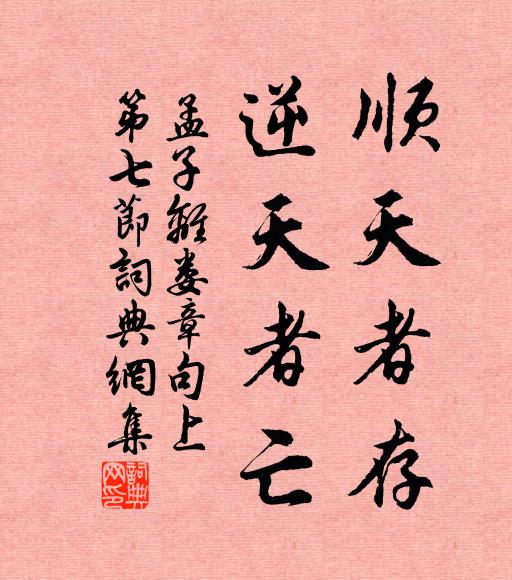 順天者存
逆天者亡
孟子離娄章句上
第七節詞典網集
詞典网印